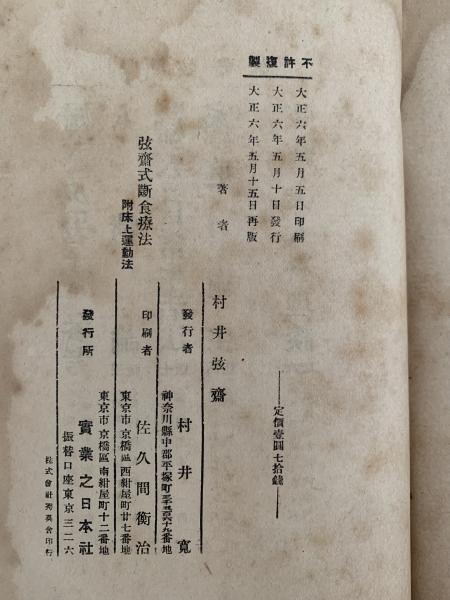 不許複製
大正六年五月五日印刷
大正六年五月十日發行
大正六年五月十五日再版
定價壹圓七拾錢
著者
村井弦齋
弦齋式斷食療法
附床上運動法
發行者
神奈川縣中郡平塚町
村井寬
印刷者
東京市京橋區西紺屋町廿七番地
佐久間衡治
發行所
東京市京橋區南紺屋町十二番地
實業之日本社
振替口座東京三二六
株式會社秀英舍印行